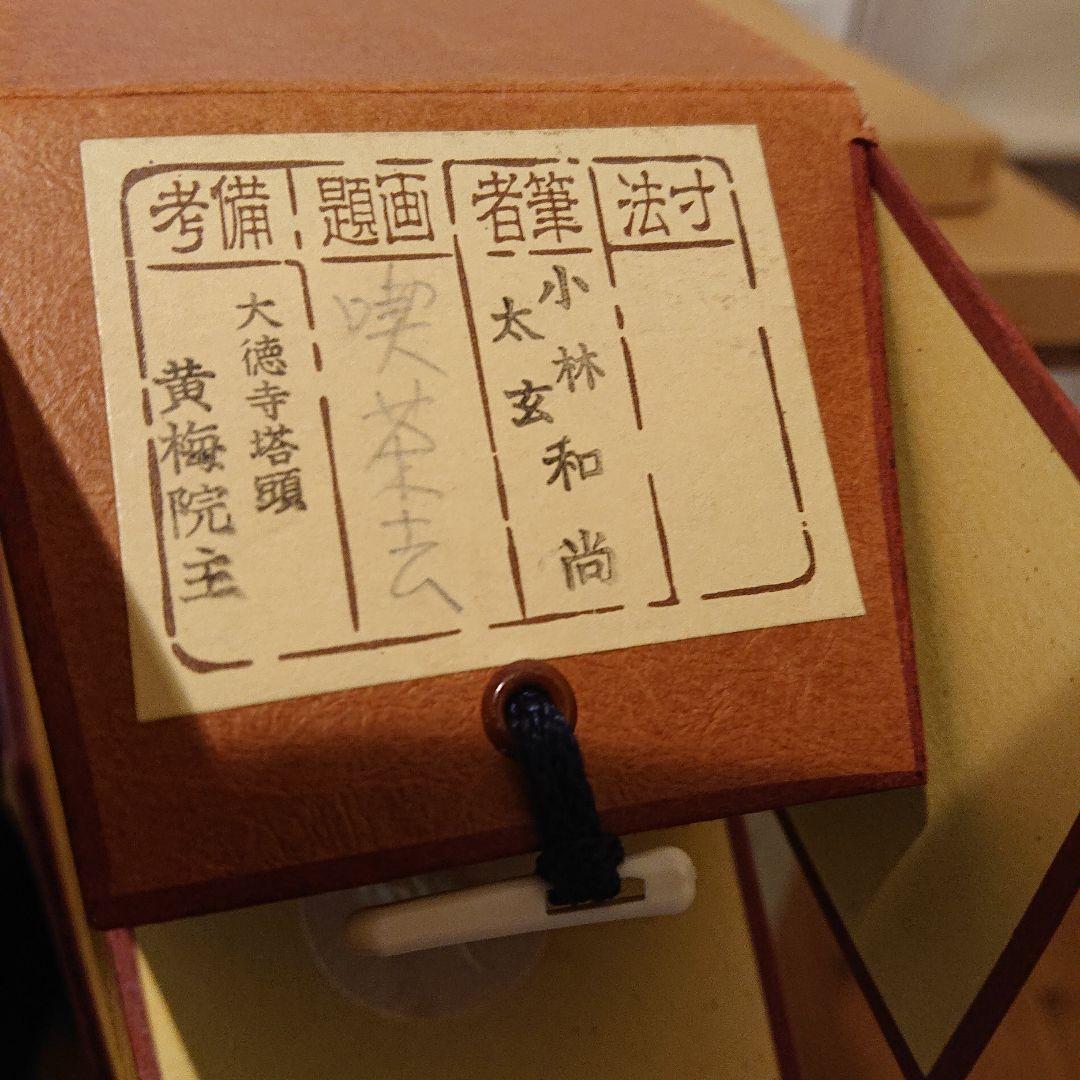 寸法
筆者
小林太玄和尚
画題
喫茶去
備考
大徳寺塔頭
黄梅院主